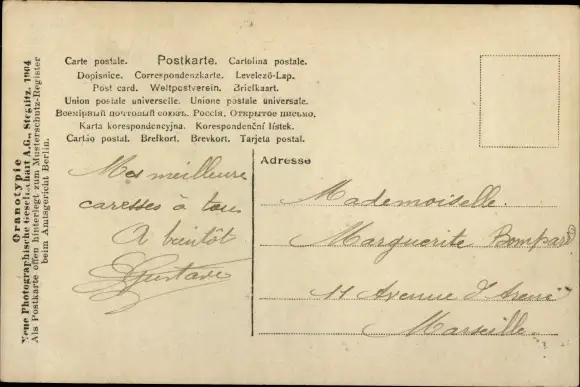 Carte postale. Postkarte. Cartolina postale.
Dopisnice. Correspondenzkarte. Levelező-Lap.
Post card. Weltpostverein. Briefkaart.
Union postale universelle. Unione postale universale.
Всемірный почтовый союзъ. Россія. Открытое письмо.
Karta korespondencyjna. Korespondenční lístek.
Cartão postal. Brefkort. Brevkort. Tarjeta postal.
Oranotypie
Neue Photographische Gesellschaft A.G., Steglitz. 1904
Als Postkarte offen hinterlegt zum Musterschutz-Register
beim Amtsgericht Berlin.
Mes meilleure
caresses à tous
A bientôt
Gustave
Adresse
Mademoiselle.
Marguerite Bompard
11 Avenue d'Arenc
Marseille.